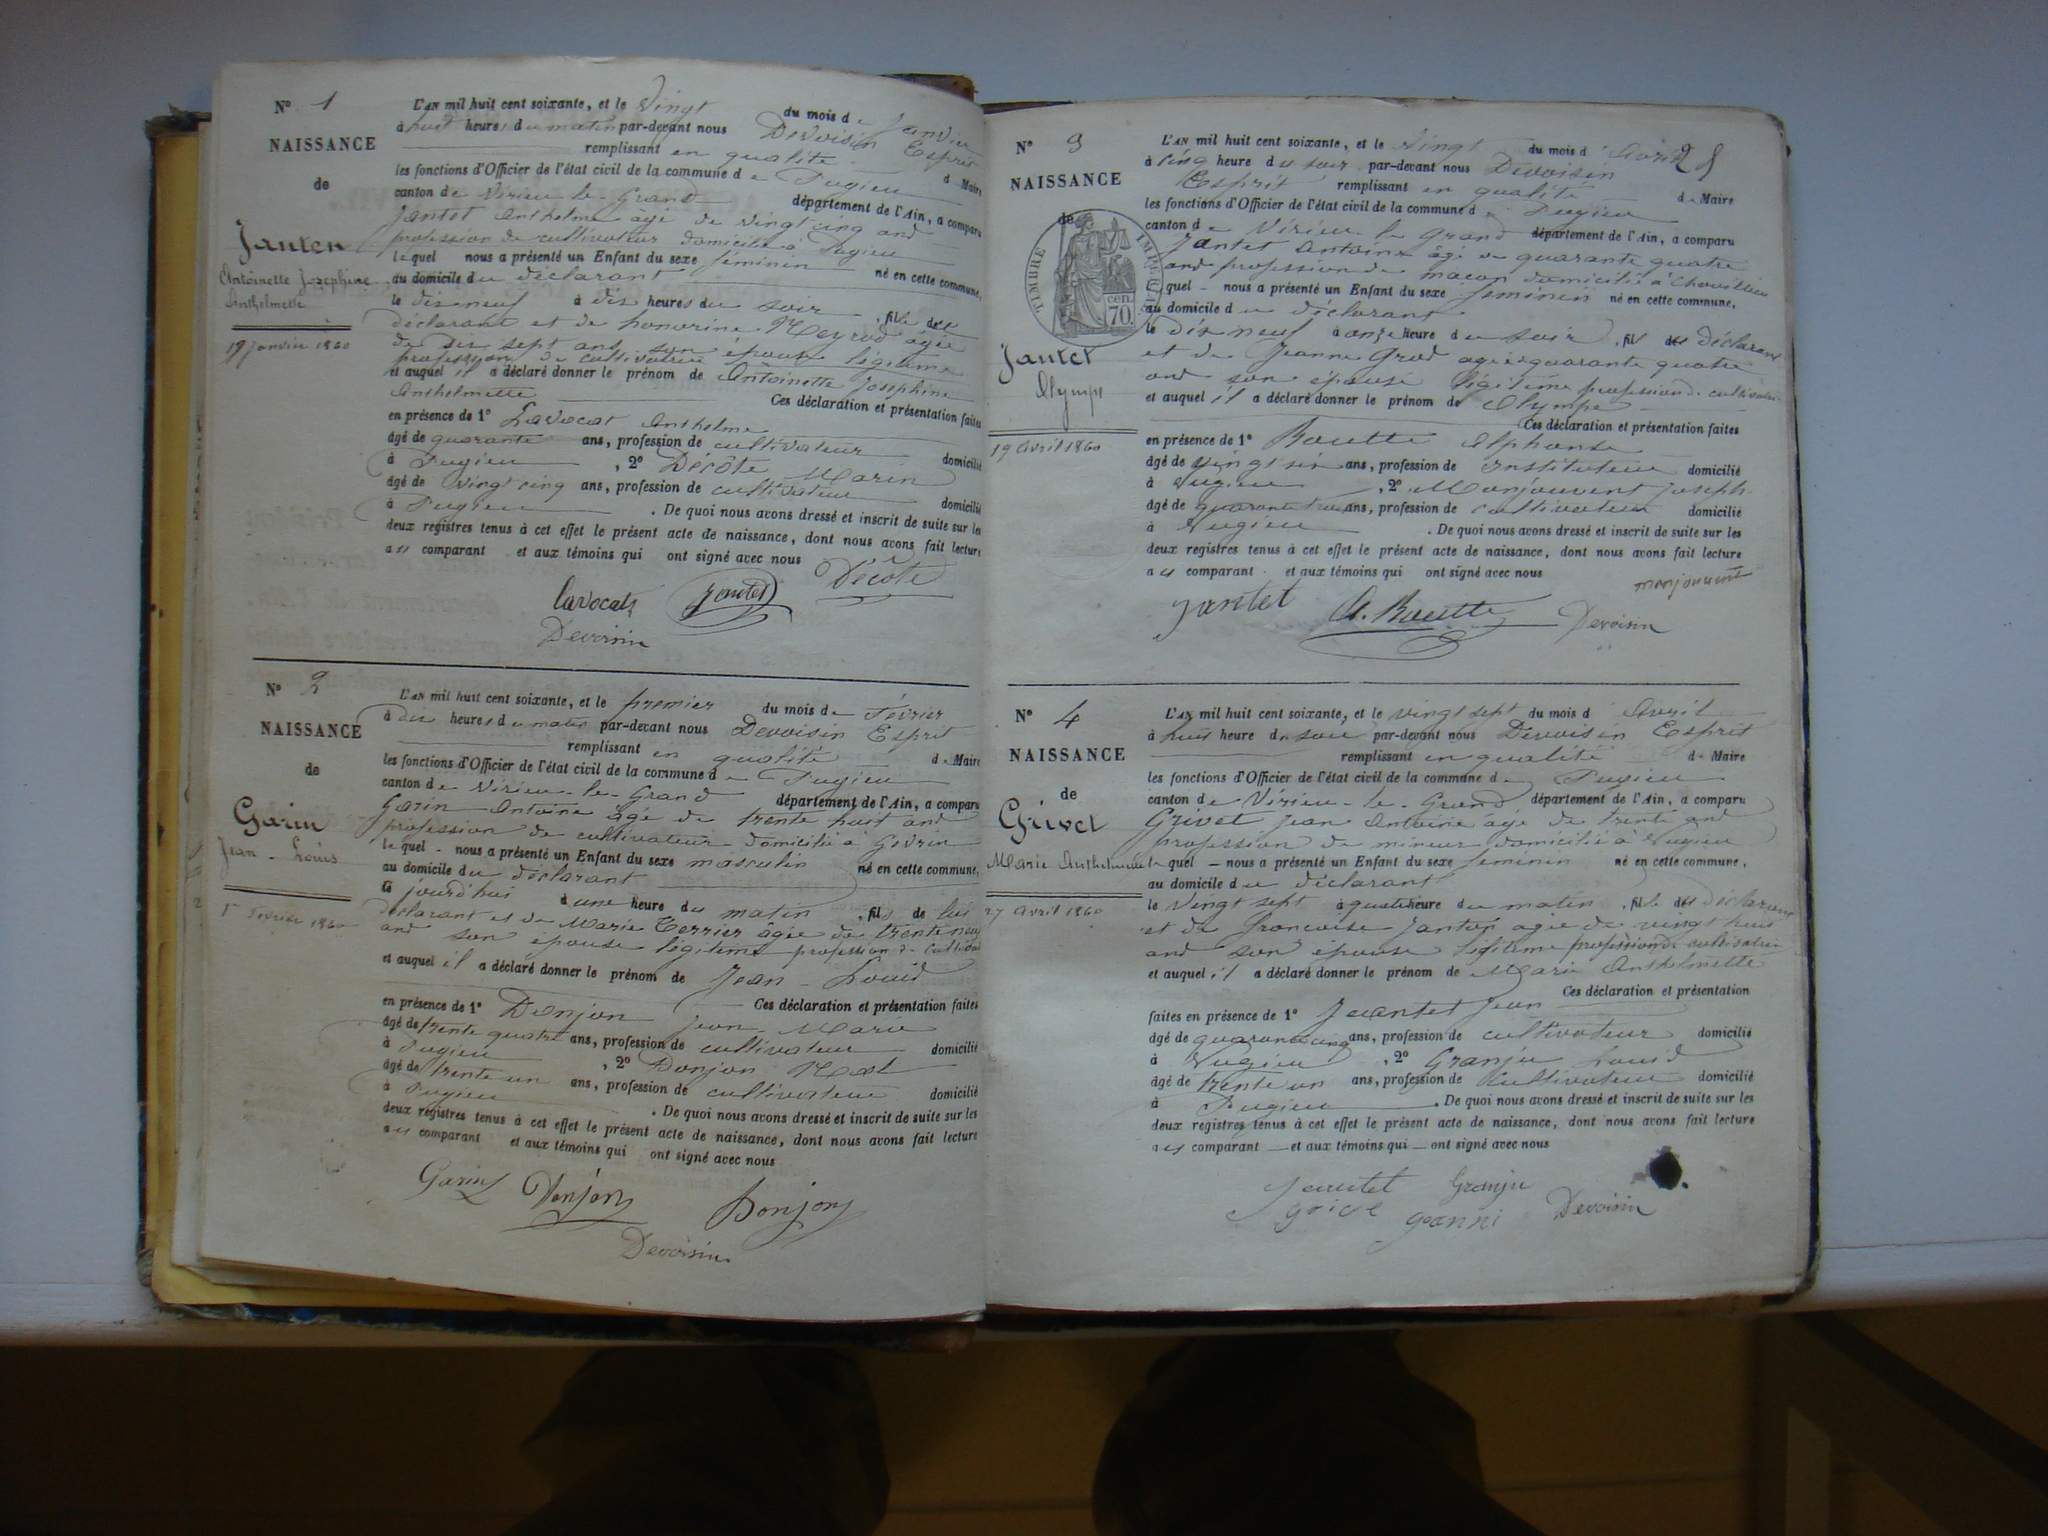 N° 1
NAISSANCE
de
Jantet
Antoinette Josephine
Anthelmette
19 Janvier 1860
L'AN mil huit cent soixante, et le Vingt du mois de Janvier
à huit heures du matin par-devant nous Devoisin Esprit
remplissant en qualité de Maire
les fonctions d'Officier de l'état civil de la commune de Pugieu
canton de Virieu-le-Grand département de l'Ain, a comparu
Jantet Anthelme âgé de vingt cinq ans
profession de cultivateur domicilié à Pugieu
lequel nous a présenté un Enfant du sexe féminin né en cette commune,
au domicile du déclarant
le dix neuf à dix heures du soir, fille de
déclarant et de honorine Meyrod âgée
de dix sept ans son épouse légitime
profession de cultivatrice
et auquel il a déclaré donner le prénom de Antoinette Josephine
Anthelmette Ces déclaration et présentation faites
en présence de 1° Lavocat Anthelme
âgé de quarante ans, profession de cultivateur domicilié
à Pugieu, 2° Décôte Marin
âgé de vingt cinq ans, profession de cultivateur domicilié
à Pugieu. De quoi nous avons dressé et inscrit de suite sur les
deux registres tenus à cet effet le présent acte de naissance, dont nous avons fait lecture
au comparant et aux témoins qui ont signé avec nous
Décôte
Lavocat Jantet
Devoisin
N° 2
NAISSANCE
de
Garin
Jean-Louis
1er Février 1860
L'AN mil huit cent soixante, et le premier du mois de Février
à dix heures du matin par-devant nous Devoisin Esprit
remplissant en qualité de Maire
les fonctions d'Officier de l'état civil de la commune de Pugieu
canton de Virieu-le-Grand département de l'Ain, a comparu
Garin Antoine âgé de trente huit ans
profession de cultivateur domicilié à
lequel nous a présenté un Enfant du sexe masculin né en cette commune,
au domicile du déclarant
jourd'hui à une heure du matin, fils de lui
déclarant et de Marie Terrier âgée de trente neuf
ans son épouse légitime profession de
et auquel il a déclaré donner le prénom de Jean-Louis
Ces déclaration et présentation faites
en présence de 1° Donjon Jean-Marie
âgé de trente quatre ans, profession de cultivateur domicilié
à Pugieu, 2° Donjon
âgé de trente un ans, profession de cultivateur domicilié
à Pugieu. De quoi nous avons dressé et inscrit de suite sur les
deux registres tenus à cet effet le présent acte de naissance, dont nous avons fait lecture
au comparant et aux témoins qui ont signé avec nous
Garin Donjon Donjon
Devoisin
N° 3
NAISSANCE
de
TIMBRE IMPÉRIAL
70 cen.
Jantet
Olympe
19 Avril 1860
L'AN mil huit cent soixante, et le Vingt du mois d'Avril
à cinq heure du soir par-devant nous Devoisin
Esprit remplissant en qualité de Maire
les fonctions d'Officier de l'état civil de la commune de Pugieu
canton de Virieu-le-Grand département de l'Ain, a comparu
Jantet Antoine âgé de quarante quatre
ans profession de maçon domicilié à
quel nous a présenté un Enfant du sexe féminin né en cette commune,
au domicile du déclarant
le dix neuf à onze heure du soir, fil des déclarant
et de Jeanne Grod agée quarante quatre
ans son épouse légitime profession de
et auquel il a déclaré donner le prénom de Olympe
Ces déclaration et présentation faites
en présence de 1° Rouette Alphonse
âgé de vingt six ans, profession de instituteur domicilié
à Pugieu, 2° Monjouvent Joseph
âgé de quarante trois ans, profession de cultivateur domicilié
à Pugieu. De quoi nous avons dressé et inscrit de suite sur les
deux registres tenus à cet effet le présent acte de naissance, dont nous avons fait lecture
au comparant et aux témoins qui ont signé avec nous
monjouvent
Jantet A. Rouette Devoisin
N° 4
NAISSANCE
de
Grivet
Marie Anthelmette
27 Avril 1860
L'AN mil huit cent soixante, et le vingt sept du mois d'Avril
à huit heure du soir par-devant nous Devoisin Esprit
remplissant en qualité de Maire
les fonctions d'Officier de l'état civil de la commune de Pugieu
canton de Virieu-le-Grand département de l'Ain, a comparu
Grivet Jean Antoine âgé de trente ans
profession de mineur domicilié à Pugieu
le quel nous a présenté un Enfant du sexe féminin né en cette commune,
au domicile du déclarant
le vingt sept à quatre heure du matin, fille des déclarant
et de Francoise Jantet agée de vingt huit
ans son épouse légitime profession de cultivatrice
et auquel il a déclaré donner le prénom de Marie Anthelmette
Ces déclaration et présentation
faites en présence de 1° Jeantet Jean
âgé de quarante cinq ans, profession de cultivateur domicilié
à Pugieu, 2° Granju Louis
âgé de trente un ans, profession de Cultivateur domicilié
à Pugieu. De quoi nous avons dressé et inscrit de suite sur les
deux registres tenus à cet effet le présent acte de naissance, dont nous avons fait lecture
au comparant et aux témoins qui ont signé avec nous
Jeantet Granju
Devoisin